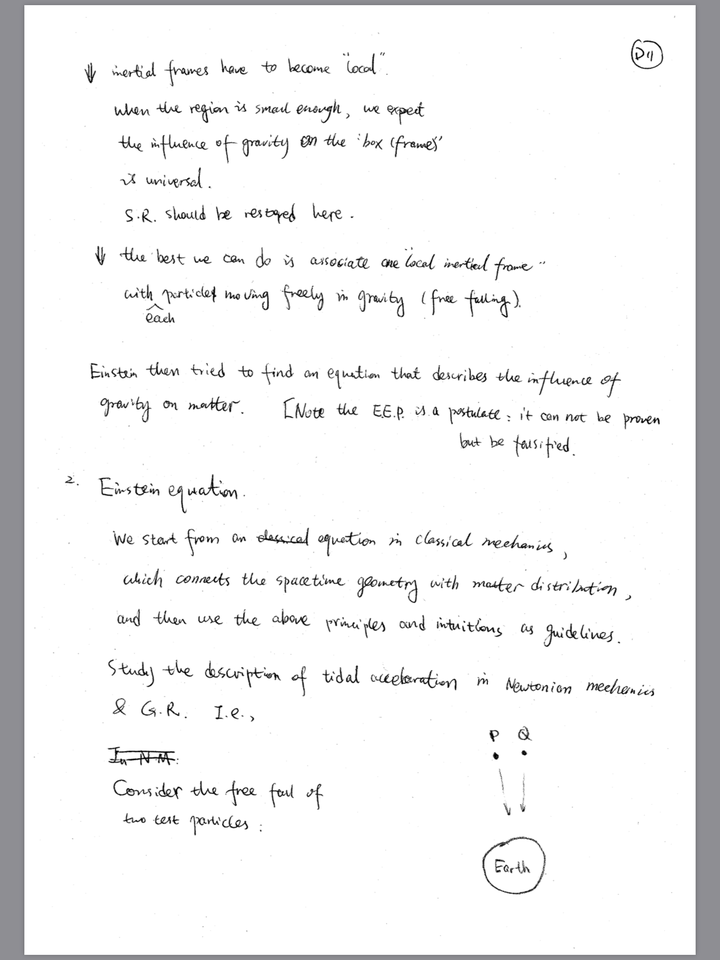 D11
⇓ inertial frames have to become "local".
when the region is small enough, we expect
the influence of gravity on the 'box (frames)'
is universal.
S.R. should be restored here.
⇓ the best we can do is associate one "local inertial frame"
with each particles moving freely in gravity (free falling).
Einstein then tried to find an equation that describes the influence of
gravity on matter. [Note the E.E.P. is a postulate: it can not be proven
but be falsified.
2. Einstein equation.
We start from an classical equation in classical mechanics,
which connects the spacetime geometry with matter distribution,
and then use the above principles and intuitions as guidelines.
Study the description of tidal acceleration in Newtonian mechanics
& G.R. I.e.,
In NM:
P Q
Consider the free fall of
two test particles:
Earth